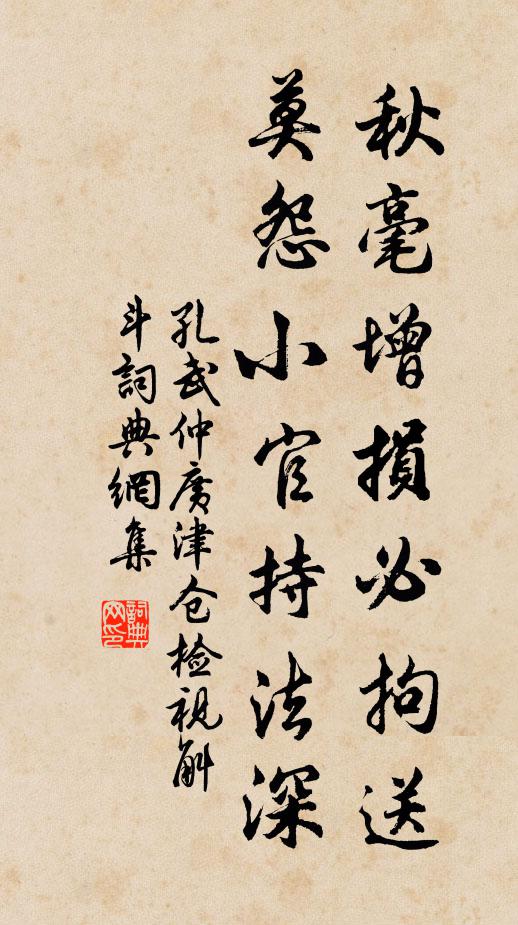 秋毫增損必拘送
莫怨小官持法深
孔武仲廣津仓檢視斛
斗詞典網集
詞典
网印